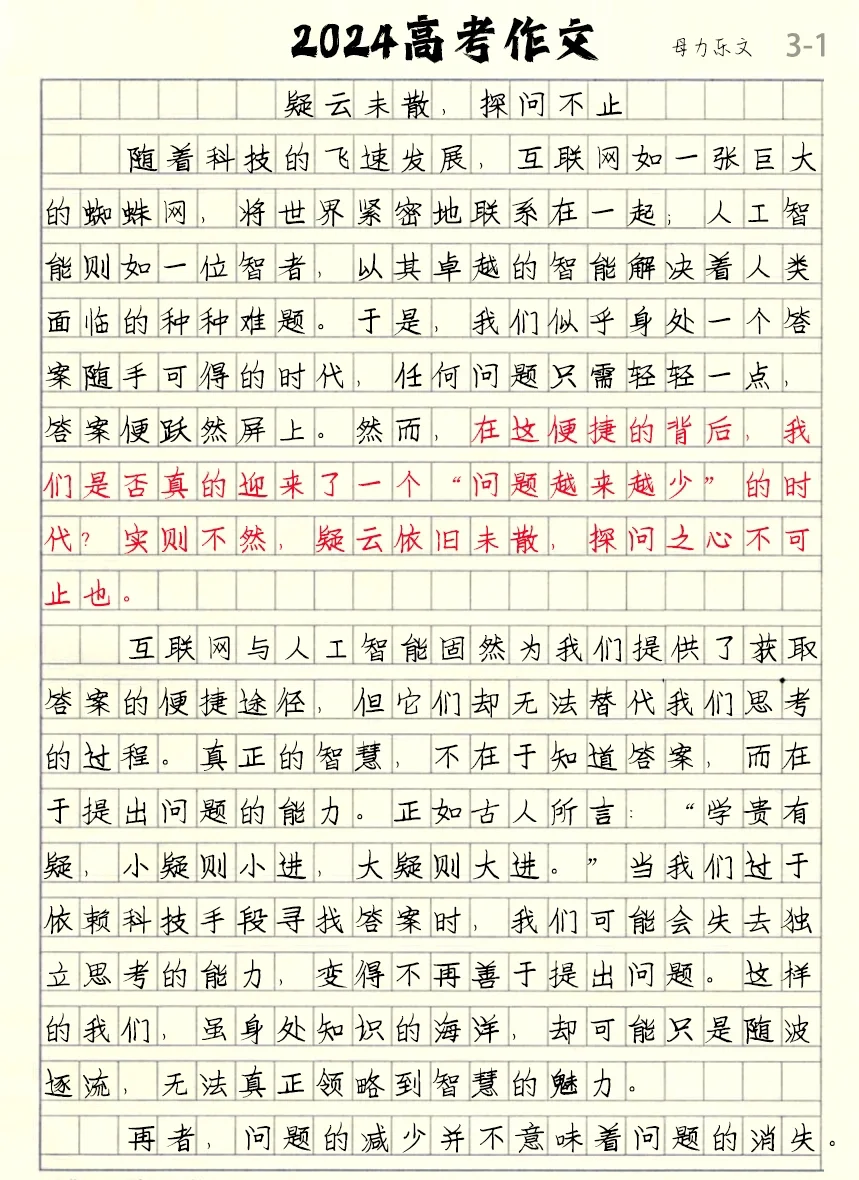 2024高考作文
母力乐文 3-1
疑云未散，探问不止
随着科技的飞速发展，互联网如一张巨大
的蜘蛛网，将世界紧密地联系在一起；人工智
能则如一位智者，以其卓越的智能解决着人类
面临的种种难题。于是，我们似乎身处一个答
案随手可得的时代，任何问题只需轻轻一点，
答案便跃然屏上。然而，在这便捷的背后，我
们是否真的迎来了一个“问题越来越少”的时
代？实则不然，疑云依旧未散，探问之心不可
止也。
互联网与人工智能固然为我们提供了获取
答案的便捷途径，但它们却无法替代我们思考
的过程。真正的智慧，不在于知道答案，而在
于提出问题的能力。正如古人所言：“学贵有
疑，小疑则小进，大疑则大进。”当我们过于
依赖科技手段寻找答案时，我们可能会失去独
立思考的能力，变得不再善于提出问题。这样
的我们，虽身处知识的海洋，却可能只是随波
逐流，无法真正领略到智慧的魅力。
再者，问题的减少并不意味着问题的消失。